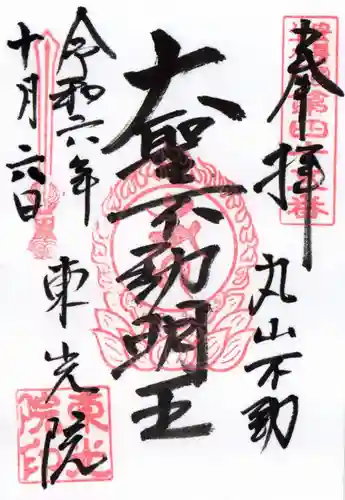 奉拝
丸山不動
大聖不動明王
令和六年
十月六日
東光院
東光
院印